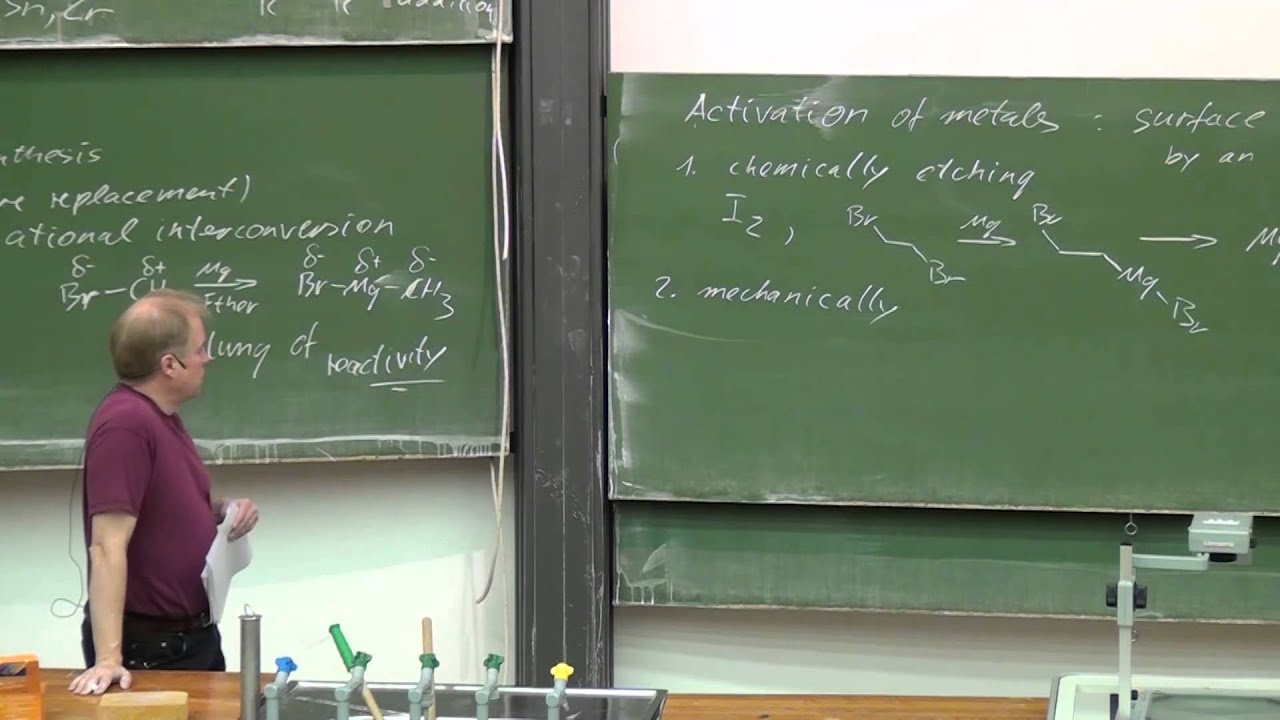 Sn, Zr R R addition
nthesis
re replacement)
ational interconversion
δ- δ+ δ- δ+ δ-
Br-CH Mg Br-Mg-CH3
Ether
lung of reactivity
Activation of metals : surface
by an
1. chemically etching
I2, Br Br Mg Br Mg Br Mg
2. mechanically